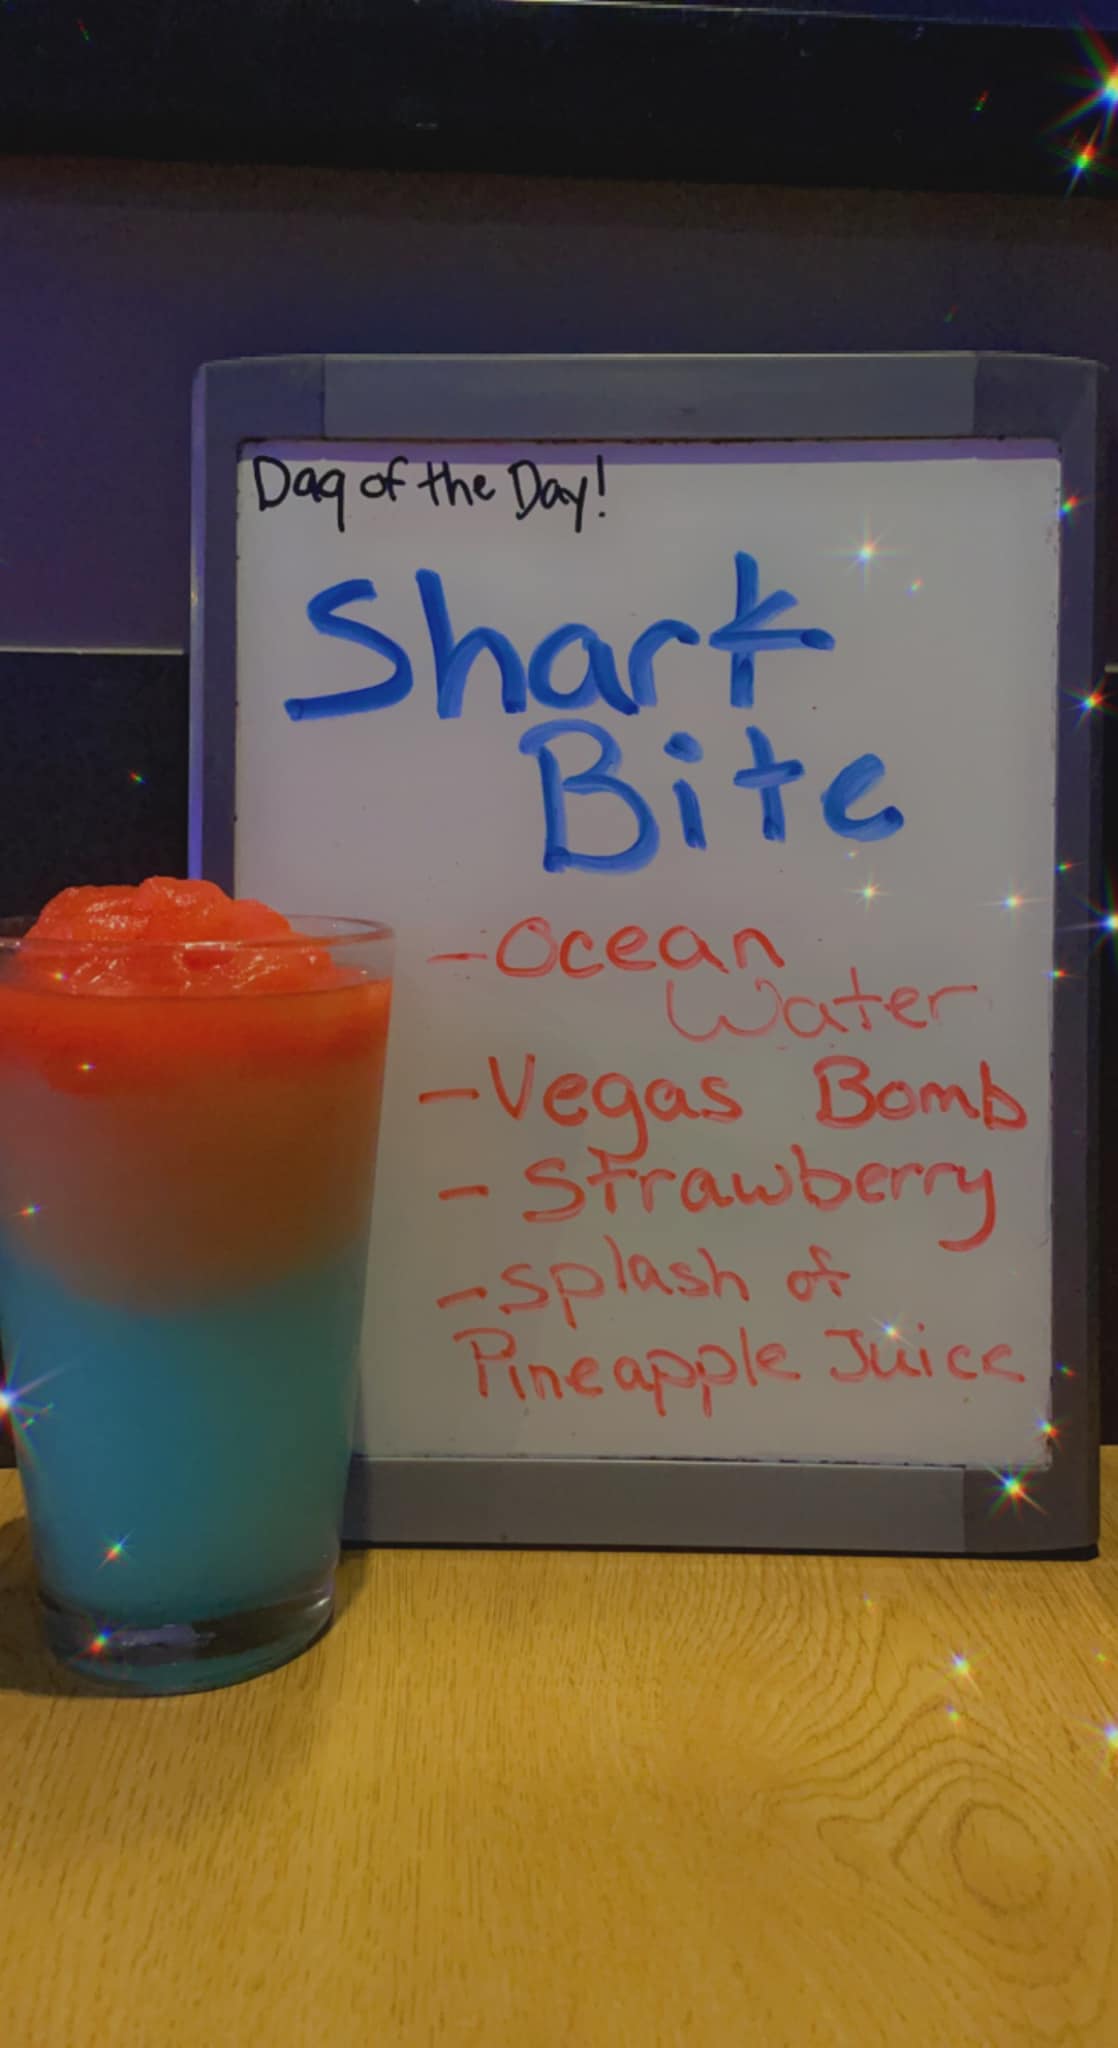 Daq of the Day!
Shark
Bite
- Ocean
Water
- Vegas Bomb
- Strawberry
- splash of
Pineapple Juice